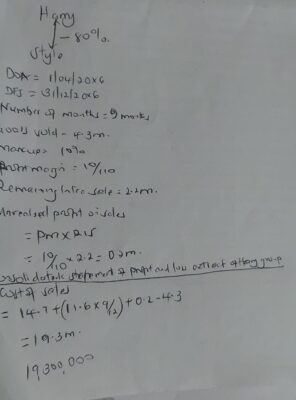 Harry
– 80%.
Style
DOA = 1/04/20x6
DFS = 31/12/20x6
Number of months = 9 months
Goods sold - 4.3m.
Markup = 10%
Profit margin = 10/110
Remaining intra sale = 2.2m.
Unrealised profit on sales
= PM x RIS
= 10/110 x 2.2 = 0.2m.
Consolidated statement of profit and loss extract of Harry group
Cost of sales
= 14.7 + (11.6 x 9/12) + 0.2 - 4.3
= 19.3m.
19300,000